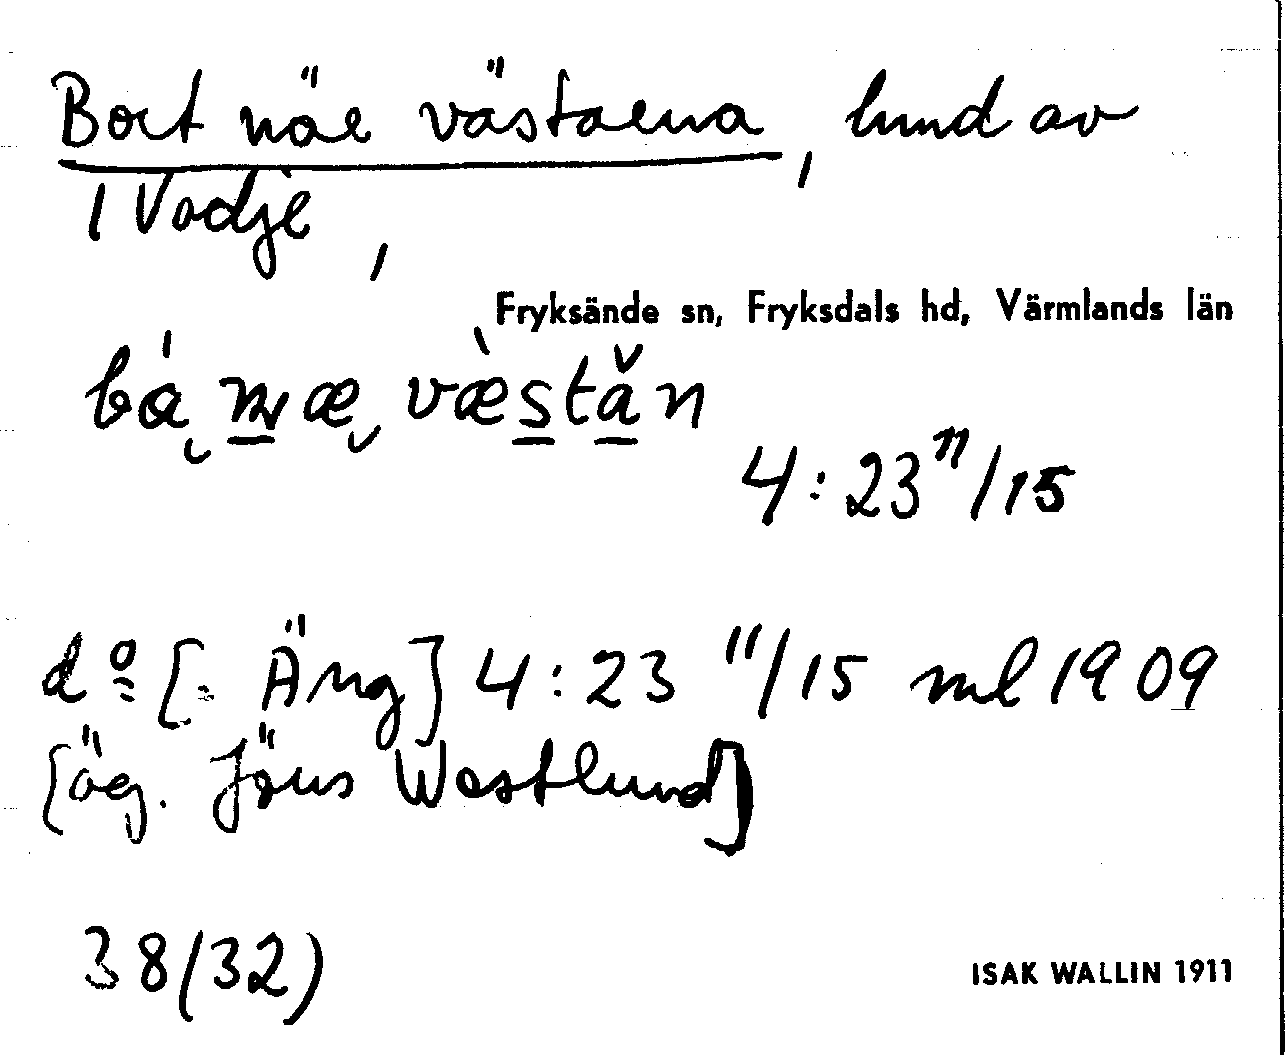 Bort när västaena, lund av
1 Vadje,
Fryksände sn, Fryksdals hd, Värmlands län
4:23ⁿ/15
dº [= Äng] 4:23 ¹¹/15 ml 1909
[äg. Jöns Westlund]
38(32)
ISAK WALLIN 1911